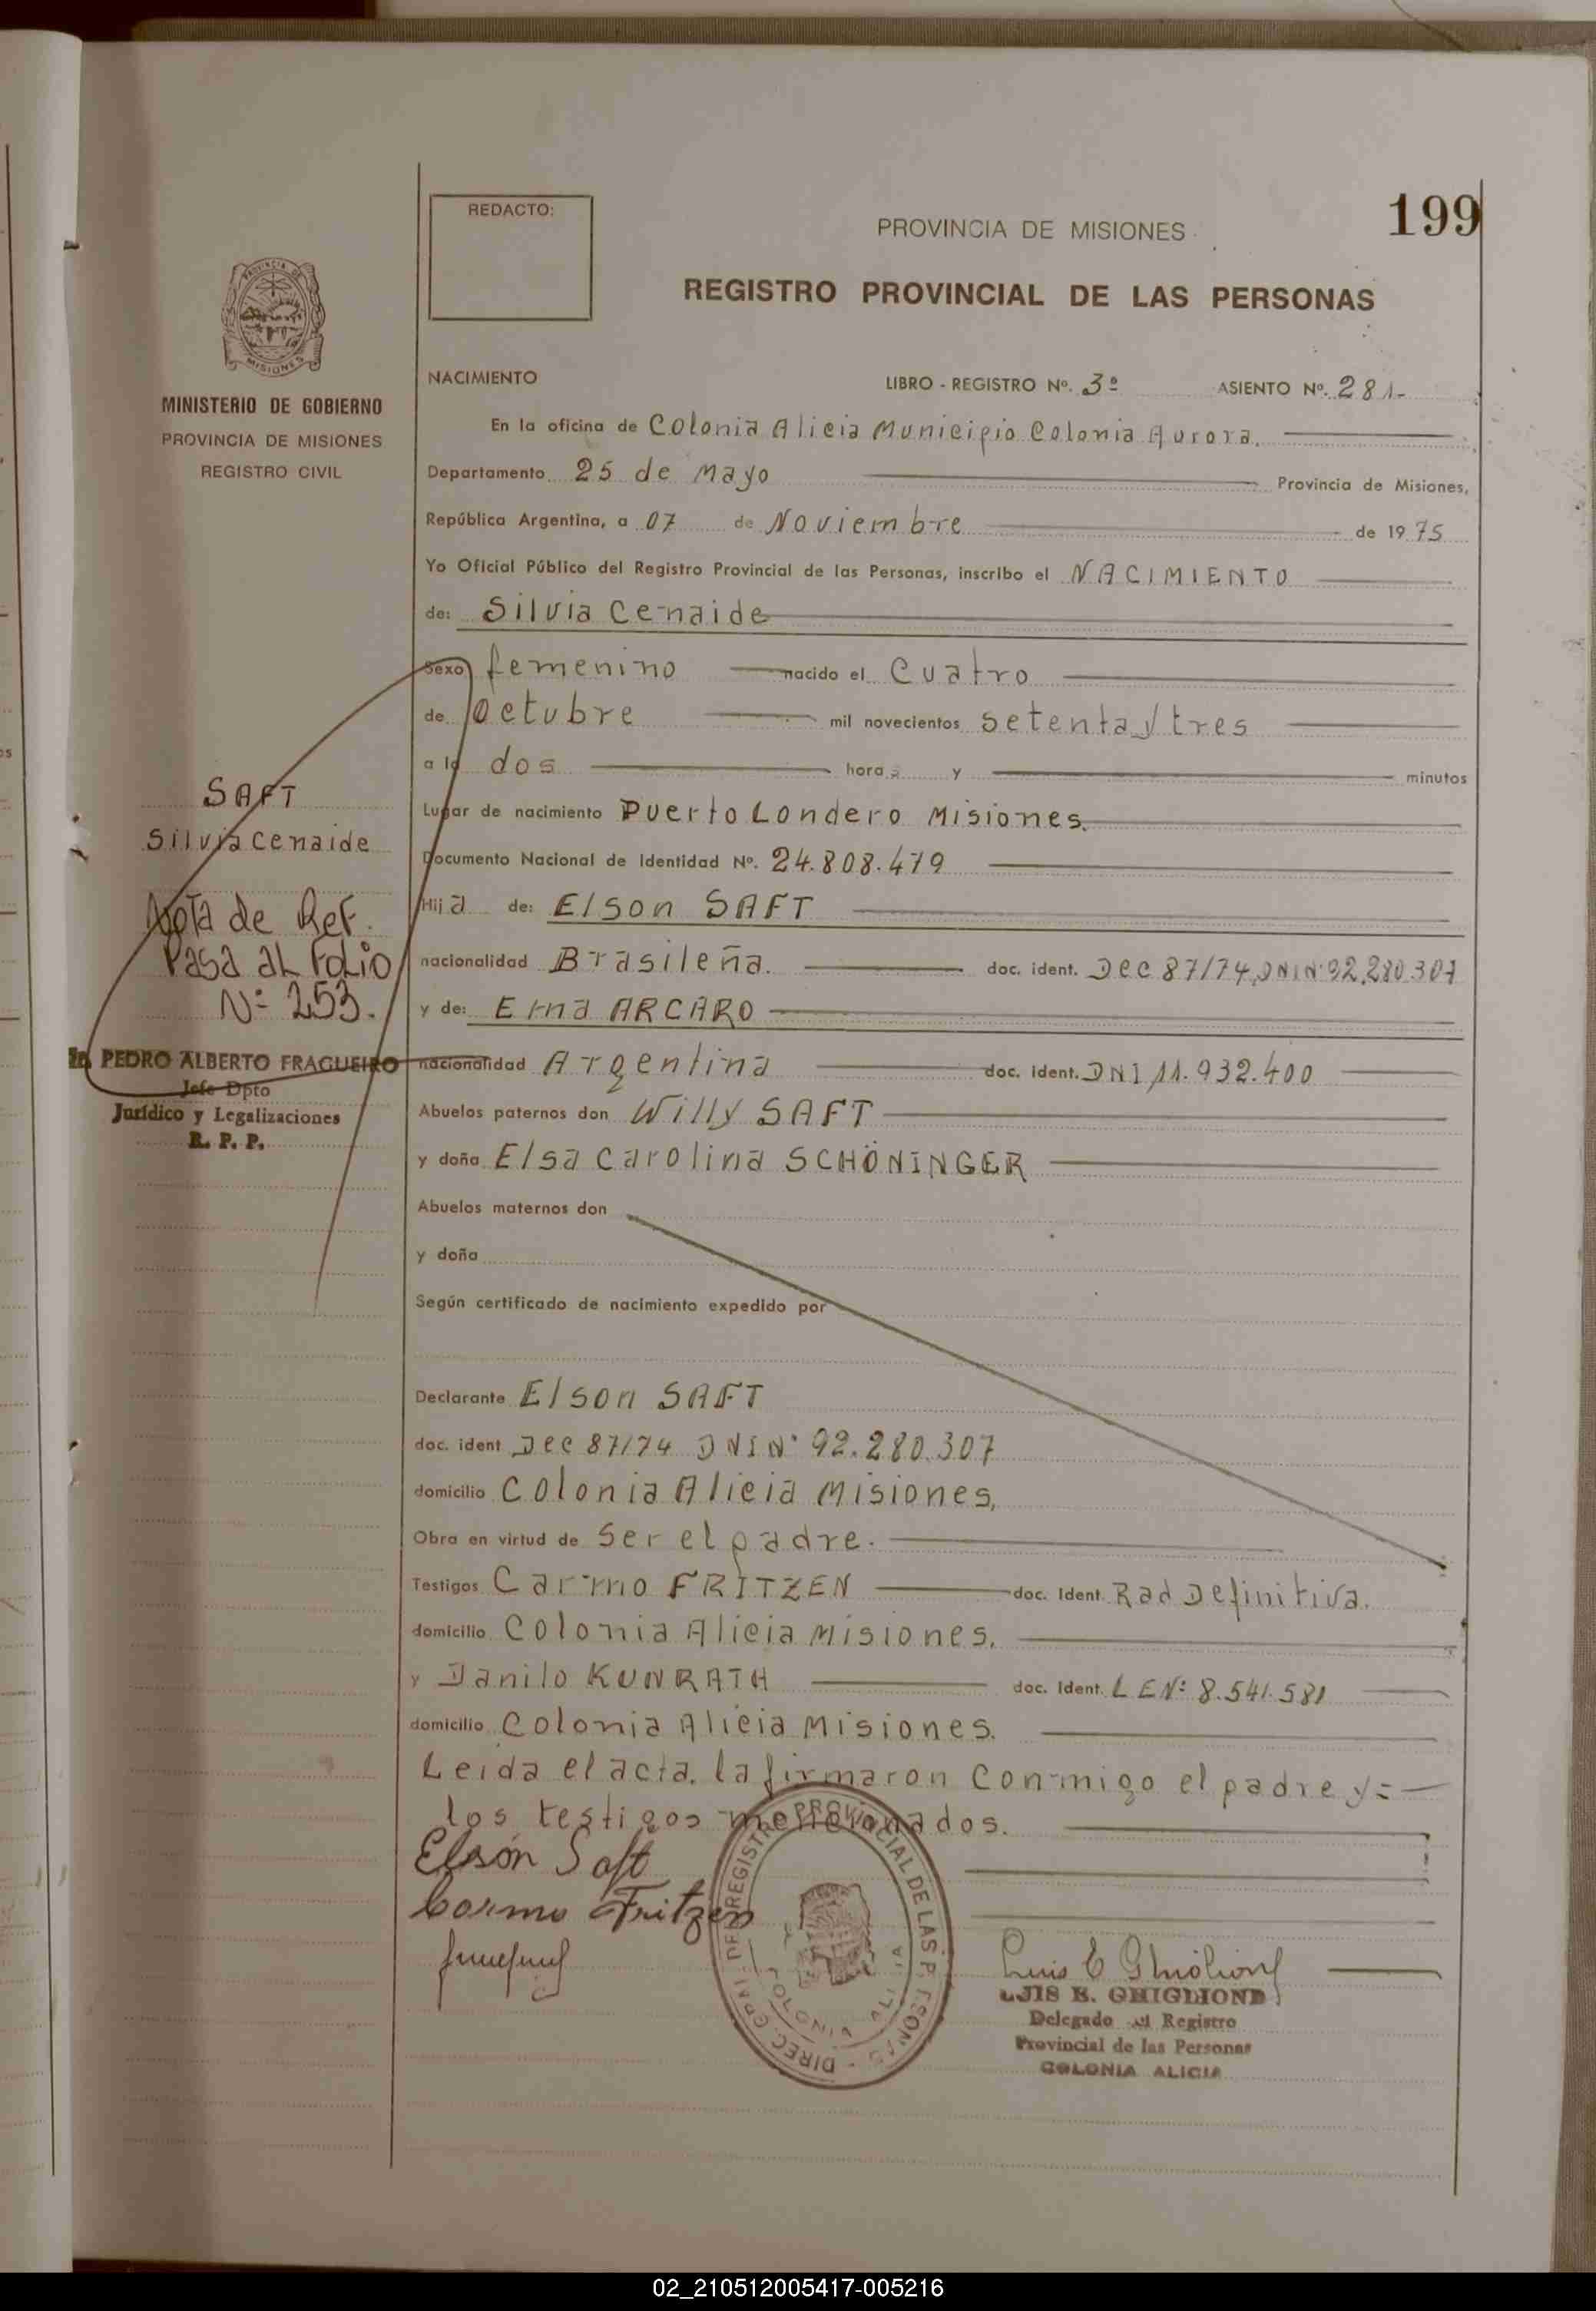 199
REDACTO:
PROVINCIA DE MISIONES
REGISTRO PROVINCIAL DE LAS PERSONAS
PROVINCIA DE MISIONES
MINISTERIO DE GOBIERNO
PROVINCIA DE MISIONES
REGISTRO CIVIL
NACIMIENTO LIBRO - REGISTRO Nº. 3º ASIENTO Nº. 281-
En la oficina de Colonia Alicia Municipio Colonia Aurora.
Departamento 25 de Mayo Provincia de Misiones,
República Argentina, a 07 de Noviembre de 1975
Yo Oficial Público del Registro Provincial de las Personas, inscribo el NACIMIENTO
de: Silvia Cenaide
Sexo femenino nacido el Cuatro
de Octubre mil novecientos setenta y tres
a la dos horas y minutos
Lugar de nacimiento Puerto Londero Misiones.
Documento Nacional de Identidad Nº. 24.808.479
Hija de: Elson SAFT
nacionalidad Brasileña. doc. ident. Dec 87/74, DNI Nº 92.280.307
y de: Erna ARCARO
nacionalidad Argentina doc. ident. DNI 11.932.400
Abuelos paternos don Willy SAFT
y doña Elsa Carolina SCHÖNINGER
Abuelos maternos don
y doña
Según certificado de nacimiento expedido por
Declarante Elson SAFT
doc. ident Dec 87/74 DNI Nº 92.280.307
domicilio Colonia Alicia Misiones,
Obra en virtud de Ser el padre.
Testigos Carmo FRITZEN doc. Ident. Rad Definitiva.
domicilio Colonia Alicia Misiones.
y Danilo KUNRATH doc. Ident. L E Nº 8.541.581
domicilio Colonia Alicia Misiones.
Leida el acta, la firmaron conmigo el padre y=
los testigos mencionados.
Elson Saft
Carmo Fritzen
SAFT
Silvia Cenaide
Nota de Ref.
Pasa al Folio
Nº 253.
PEDRO ALBERTO FRAGUEIRO
Jefe Dpto
Jurídico y Legalizaciones
R. P. P.
DIREC. GRAL. DEL REGISTRO PROVINCIAL DE LAS PERSONAS
COLONIA ALICIA
Luis E Ghiglione
LUIS E. GHIGLIONE
Delegado del Registro
Provincial de las Personas
COLONIA ALICIA
02_210512005417-005216